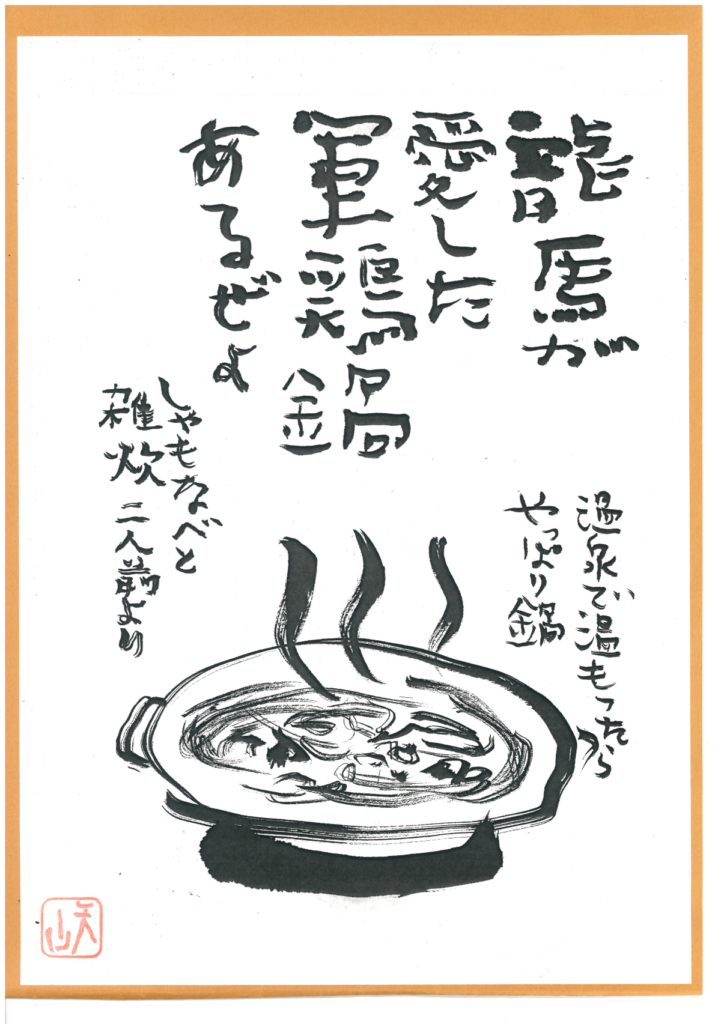 龍馬が
愛した
軍鶏鍋
あるぜよ
温泉で温もったら
やっぱり鍋
しゃもなべと
雑炊 二人前より